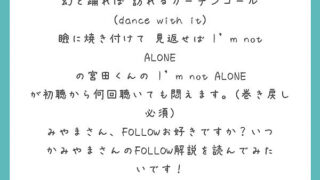 幻と踊れば 訪れるカーテンコール
(dance with it)
瞼に焼き付けて 見返せば I'm not
ALONE
の宮田くんの I'm not ALONE
が初聴から何回聴いても悶えます。(巻き戻し
必須)
みやまさん、FOLLOWお好きですか？いつ
かみやまさんのFOLLOW解説を読んでみた
いです！